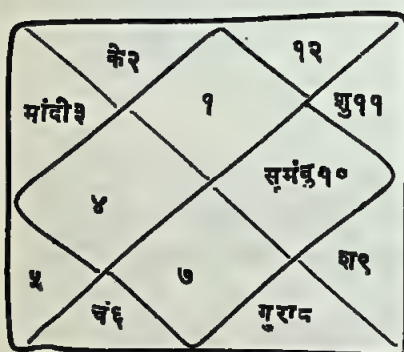 के२
१२
मांदी३
१
शु११
सूमंबु१०
४
५
७
श९
चं६
गुरा८